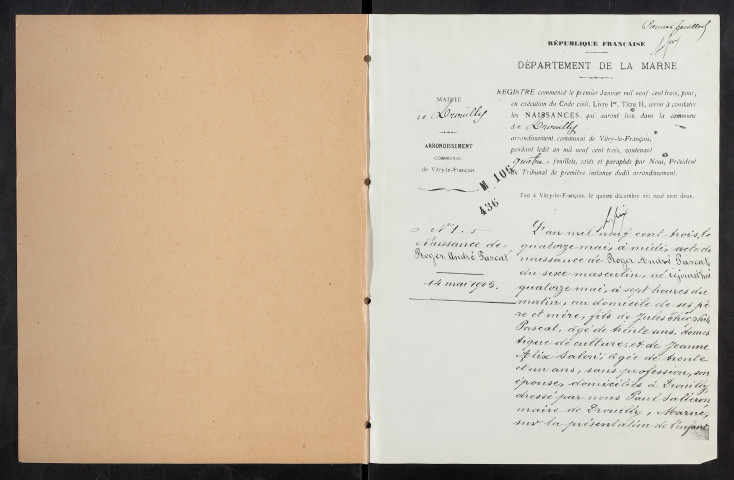 Premier feuillet
RÉPUBLIQUE FRANÇAISE
DÉPARTEMENT DE LA MARNE
MAIRIE
de Drouilly
ARRONDISSEMENT
COMMUNAL
de Vitry-le-François
M 106
436
REGISTRE commencé le premier Janvier mil neuf cent trois, pour,
en exécution du Code civil, Livre Ier, Titre II, servir à constater
les NAISSANCES qui auront lieu dans la commune
de Drouilly
arrondissement communal de Vitry-le-François,
pendant ledit an mil neuf cent trois, contenant
quatre feuillets, cotés et paraphés par Nous, Président
du Tribunal de première instance dudit arrondissement.
Fait à Vitry-le-François, le quinze décembre mil neuf cent deux.
N° 1.
Naissance de
Roger André Pascat
14 mai 1903.
L'an mil neuf cent trois, le
quatorze mai, à midi, acte de
naissance de Roger André Pascat
du sexe masculin, né cejourd'hui
quatorze mai, à sept heures du
matin, au domicile de ses pè
re et mère, fils de Jules Théophile
Pascat, âgé de trente ans, domes
tique de culture, et de Jeanne
Alix Salon, âgée de trente
et un ans, sans profession, son
épouse, domiciliés à Drouilly,
dressé par nous Paul
maire de Drouilly, Marne,
sur la présentation de l'enfant